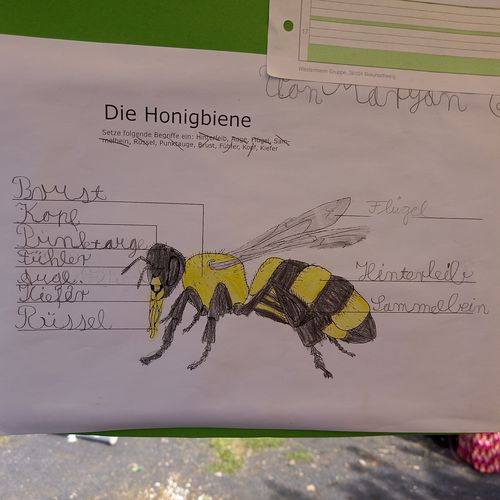 17
Westermann Gruppe, 38104 Braunschweig
von Maryam
Die Honigbiene
Setze folgende Begriffe ein: Hinterleib, Auge, Flügel, Sam-
melbein, Rüssel, Punktauge, Brust, Fühler, Kopf, Kiefer
Brust
Kopf
Punktauge
Fühler
Kiefer
Rüssel
Flügel
Hinterleib
Sammelbein